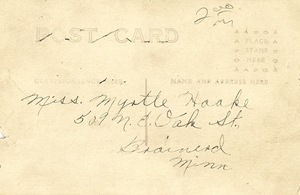 POST CARD
PLACE
STAMP
HERE
CORRESPONDENCE HERE
NAME AND ADDRESS HERE
Miss. Myrtle Haake
509 N.E. Oak St.,
Brainerd
Minn